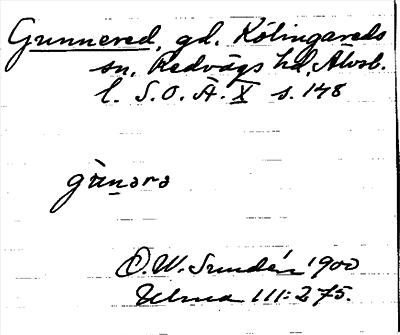 Gunnered, gd. Kölingareds
sn, Redvägs hd, Älvsb.
l. S.O.Ä. X s. 148
gùnərə
O.W. Sundén 1900
Ulma 111:275.